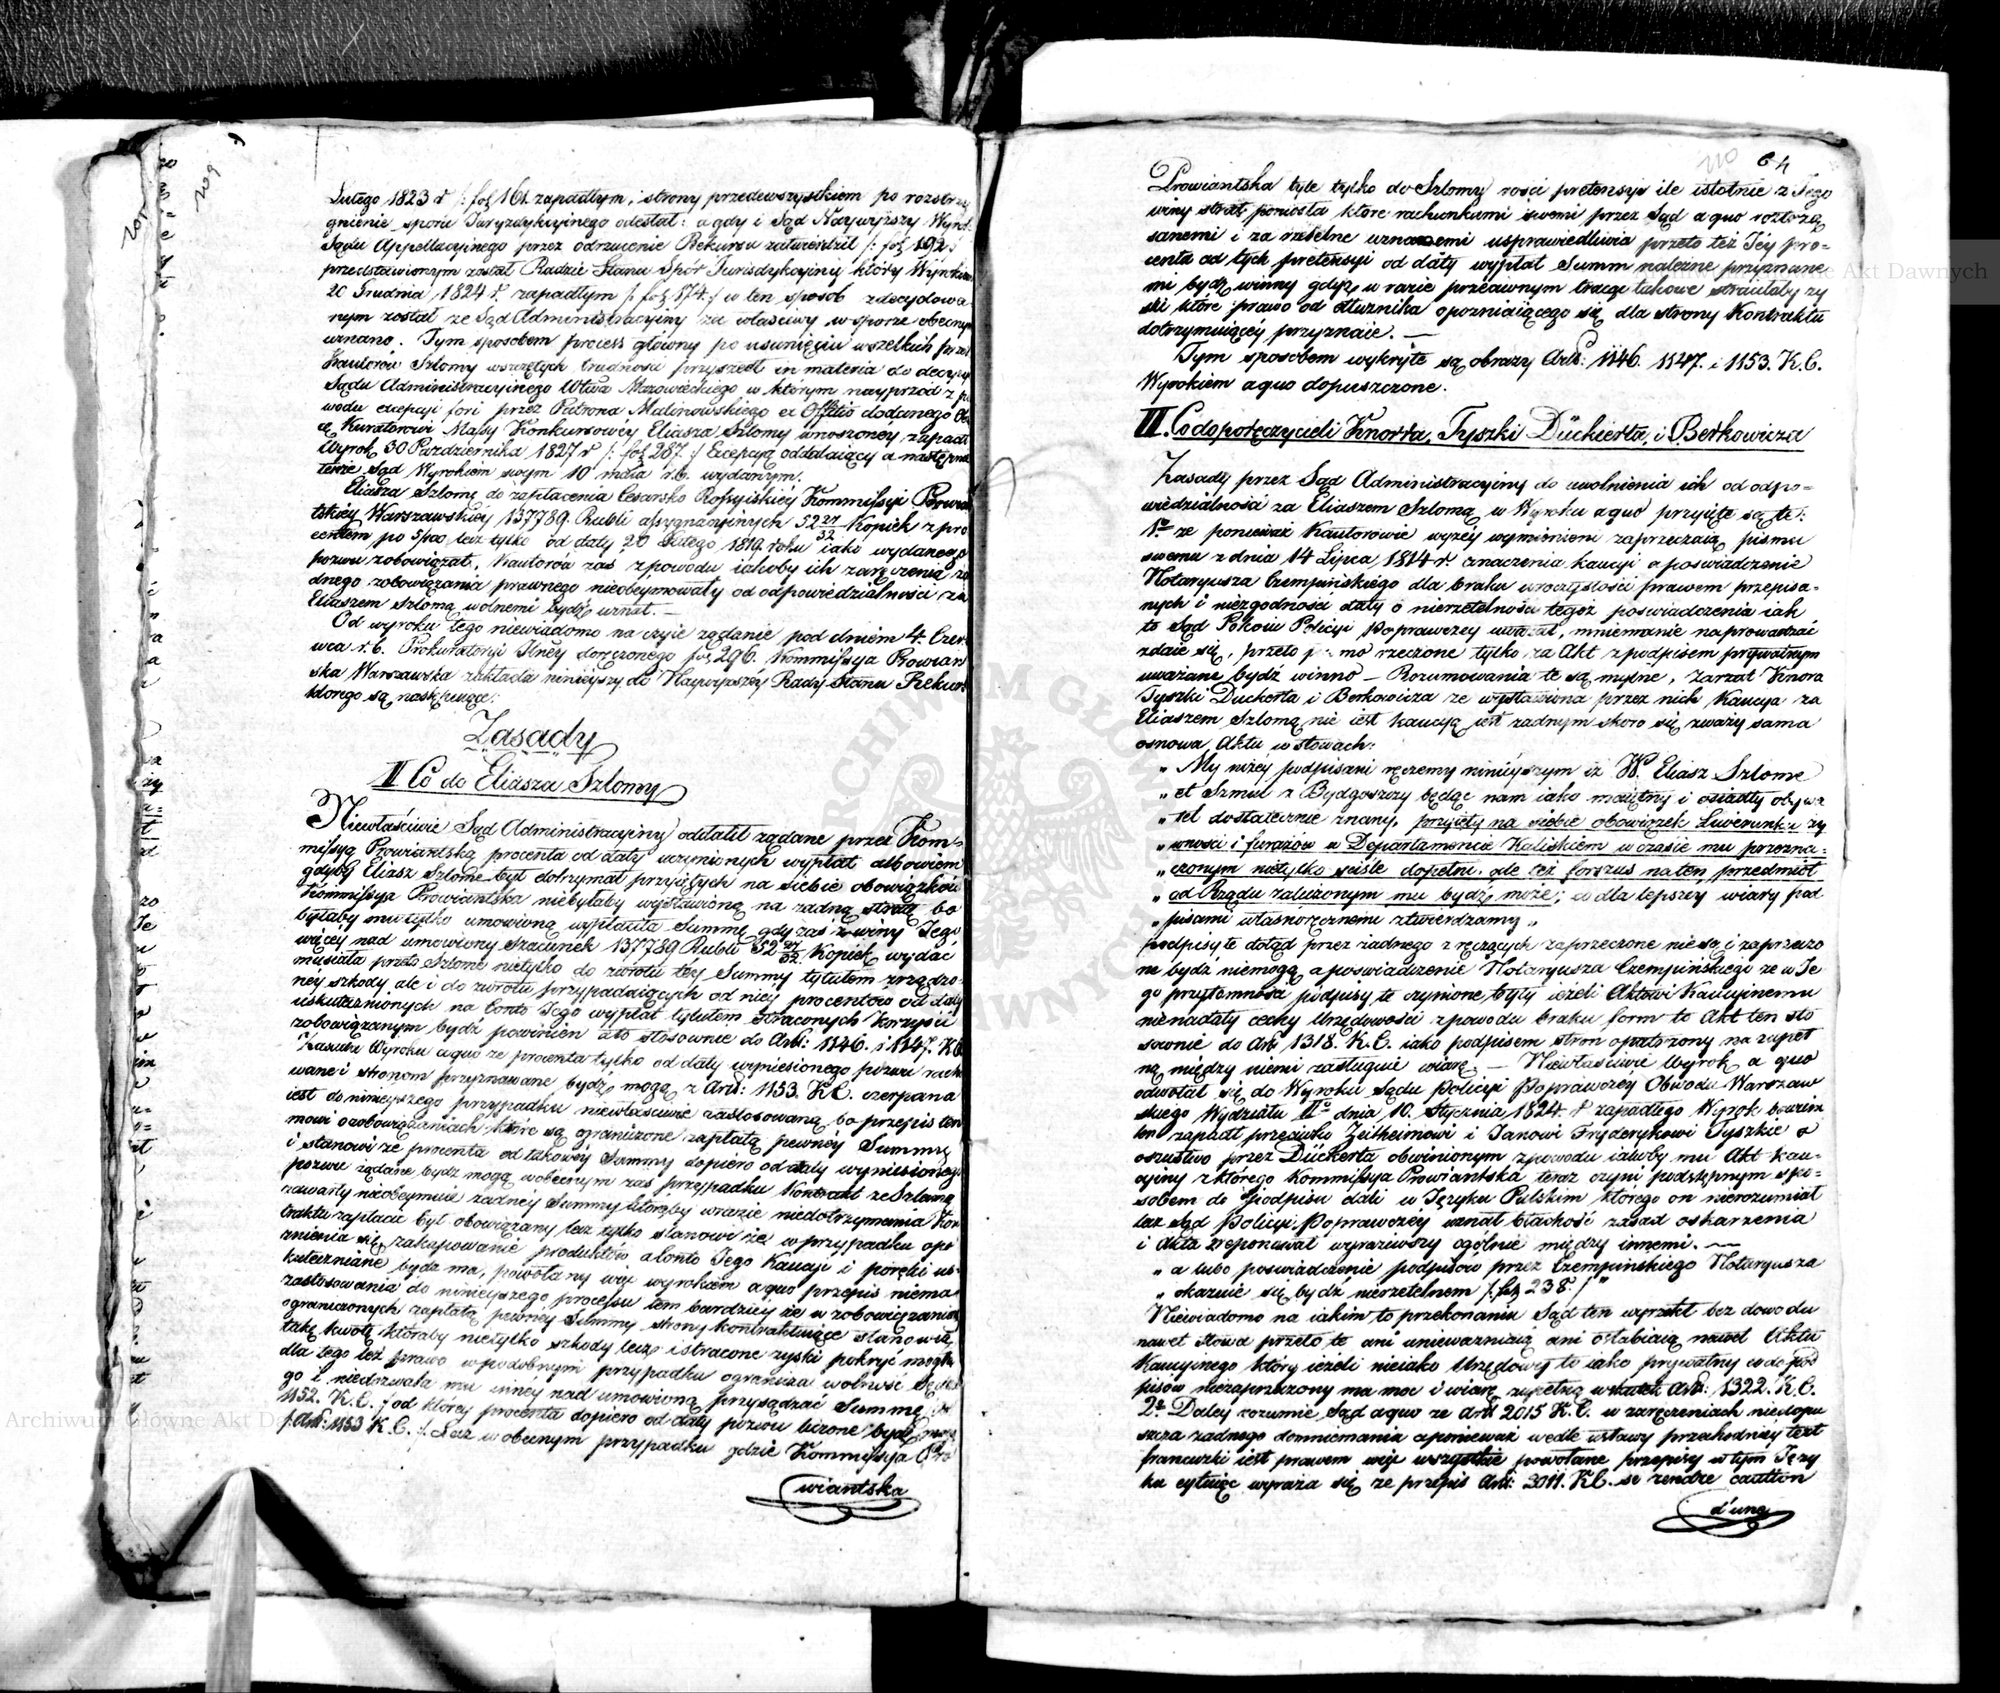 209
Lutego 1823 r /: fol 161. zapadłym, strony przedewszystkiem po rozstrzy
gnienie sporu Juryzdykcyinego odesłał: a gdy i Sąd Naywyższy Wyrok
Sądu Appellacyinego przez odrzucenie Rekursu zatwierdził /: fol 192 :/
przedstawionym został Radzie Stanu Spór Jurisdykcyiny który Wyrokiem
20 Grudnia 1824 r. zapadłym /: fol 174 :/ w ten sposób zdecydowa
nym został że Sąd Administracyiny za właściwy w sporze obecnym
uznano. Tym sposobem process główny po usunięciu wszelkich przez
Kautorów Szlomy wszczętych trudności przyszedł in materia do decyzyi
Sądu Administracyinego Wdztwa Mazowieckiego w którym nayprzód z po
wodu excepcyi fori przez Patrona Malinowskiego ex Officio dodanego
Kuratorowi Massy Konkursowéy Eliasza Szlomy wnoszonéy zapadł
Wyrok 30 Pazdziernika 1827 r /: fol 287. :/ Excepcyą oddalaiący a następ
nie Sąd Wyrokiem swym 10 maia r.b. wydanym.
Eliasza Szlomę do zapłacenia Cesarsko Rossyiskiéy Kommissyi Prowian
tskiéy Warszawskiéy 137789. Rubli assygnacyinych 52 27/32 Kopiek z pro
centem po 5/100 lecz tylko od daty 20 Lutego 1819 roku iako wydanego
pozwu zobowiązał, Kautorów zaś z powodu iakoby ich zaręczenia ża
dnego zobowiązania prawnego nieobeymowały od odpowiedzialności za
Eliaszem Szlomą wolnemi bydź uznał. —
Od wyroku tego niewiadomo na czyie żądanie pod dniem 4. Czer
wca r.b. Prokuratoryi Gney doręczonego fol 296. Kommissya Prowian
ska Warszawska zakłada ninieyszy do Naywyższey Rady Stanu Rekurs
którego są następuiące:
Zasady
II Co do Eliasza Szlomy
Niewłaściwie Sąd Administracyiny oddalił żądane przez Kom-
missyą Prowiantską procenta od daty uczynionych wypłat albowiem
gdyby Eliasz Szlome był dotrzymał przyiętych na siebie obowiązków
Kommissya Prowiantska niebyłaby wystawioną na żadną stratę bo
byłaby mu tylko umowioną wypłaciła Summę, gdy zaś z winy Jego
więcey nad umowiony Szacunek 137789 Rubli 52 27/32 Kopiek wydać
musiała przeto Szlome nietylko do zwrotu téy Summy tytułem zrządzo-
néy szkody ale i do zwrotu przypadaiących od niéy procentów od daty
uskutecznionych na Conto Jego wypłat tytułem straconych Korzyści
zobowiązanym bydź powinien a to stosownie do Art: 1146. i 1147. K.C.
Zasada Wyroku a quo że procenta tylko od daty wyniesionego pozwu racho
wane i stronom przyznawane bydź mogą z Art: 1153. K.C. czerpana
iest do ninieyszego przypadku niewłaściwie zastosowaną bo przepis ten
mowi o zobowiązaniach które są ograniczone zapłatą pewnéy Summy
i stanowi że procenta od takowéy Summy dopiero od daty wyniesionego
pozwu żądane bydź mogą w obecnym zaś przypadku Kontrakt ze Szlomą
zawarty nieobeymuie żadnéy Summy którąby w razie niedotrzymania Kon
traktu zapłacić był obowiązany lecz tylko stanowi że w przypadku opó
znienia się, zakupowanie produktów a Conto Jego Kaucyi i poręki us
kuteczniane bydź ma, powołany więc wyrokiem a quo przepis niema
zastosowania do ninieyszego processu tem bardziéy że w zobowiązaniach
ograniczonych zapłatą pewnéy Summy strony kontraktuiące stanowią
taką kwotę któraby nietylko szkody lecz i stracone zyski pokryć mogła
dla tego też prawo w podobnym przypadku ogranicza wolność Sędzie
go i niedozwala mu innéy nad umowioną przysądzać Summę Art
1152. K.C. / od któréy procenta dopiero od daty pozwu liczone bydź mogą
/: Art: 1153 K.C. :/ Lecz w obecnym przypadku gdzie Kommissya Pro
wiantska
110 64
Prowiantska tyle tylko do Szlomy rości pretensyi ile istotnie z Jego
winy strat poniosła które rachunkami swemi przez Sąd a quo roztrzą
sanemi i za rzetelne uznanemi usprawiedliwia przeto też Jéy pro-
centa od tych pretensyi od daty wypłat Summ należne przyznane
mi bydź winny gdyż w razie przeciwnym traci takowe straciłaby zy
ski które prawo od dłużnika opozniaiącego się dla strony Kontraktu
dotrzymuiącéy przyznaie. —
Tym sposobem wykryte są obrazy Art: 1146. 1147. i 1153. K.C.
Wyrokiem a quo dopuszczone.
III. Co do poręczycieli Knorra, Tyszki Dückierta, i Berkowicza
Zasady przez Sąd Administracyiny do uwolnienia ich od odpo-
wiedzialności za Eliaszem Szlomą w Wyroku a quo przyięte są te:
1o że ponieważ Kautorowie wyżéy wymienieni zaprzeczaią pismu
swemu z dnia 14 Lipca 1814 r. znaczenia kaucyi a poswiadczenie
Notaryusza Czempińskiego dla braku uroczystości prawem przepisa-
nych i niezgodności daty o nierzetelności tegoż poswiadczenia iak
to Sąd Pokoiu Policyi Poprawczey uważał, mniemanie naprowadzać
zdaie się, przeto pismo rzeczone tylko za Akt z podpisem prywatnym
uważane bydź winno — Rozumowania te są mylne, Zarzut Knora
Tyszki Duckerta i Berkowicza że wystawiona przez nich Kaucya za
Eliaszem Szlomą nie iest kaucyą iest żadnym skoro się zważy sama
osnowa Aktu w słowach:
„ My niżéy podpisani ręczemy ninieyszym iż W. Eliasz Szlome
„ et Szmul z Bydgoszczy będąc nam iako maiętny i osiadły obywa
„ tel dostatecznie znany, przyięty na siebie obowiązek Liwerunku ży
„ wności i furażów w Departamencie Kaliskiem w czasie mu przezna-
„ czonym nietylko ściśle dopełni, ale też forszus na ten przedmiot
„ od Rządu zaliczonym mu bydź może; co dla lepszey wiary pod
„ pisami własnoręcznemi ztwierdzamy „
podpisy te dotąd przez żadnego z ręczących zaprzeczone nie są i zaprzeczo
ne bydź niemogą a poswiadczenie Notaryusza Czempińskiego że w Je
go przytomności podpisy te czynione były ieżeli Aktowi Kaucyinemu
nienadały cechy Urzędowości z powodu braku form to Akt ten sto
sownie do Art 1318. K.C. iako podpisem stron opatrzony na zupeł
ną między niemi zasługuie wiarę. — Niewłaściwie Wyrok a quo
odwołał się do Wyroku Sądu Policyi Poprawczey Obwodu Warszaw
skiego Wydziału IIo dnia 10. Stycznia 1824. r zapadłego Wyrok bowiem
ten zapadł przeciwko Zeltheimowi i Janowi Fryderykowi Tyszkie o
oszustwo przez Dückerta obwinionym z powodu iakoby mu Akt kau-
cyiny z którego Kommissya Prowiantska teraz czyni podstępnym spo-
sobem do Podpisu dali w Języku Polskim którego on nierozumiał
lecz Sąd Policyi Poprawczéy uznał błachość zasad oskarżenia
i Akta zreponował wyraziwszy ogólnie między innemi. —
„ a lubo poswiadczenie podpisów przez Czempińskiego Notaryusza
„ okazuie się bydź nierzetelnem /: fol 238. :/ „
Niewiadomo na iakim to przekonaniu Sąd ten wyrzekł bez dowodu
nawet słowa przeto te ani unieważniaią ani osłabiaią nawet Aktu
Kaucyinego który ieżeli nieiako Urzędowy to iako prywatny co do pod
pisów niezaprzeczony ma moc i wiarę zupełną wskutek Art: 1322. K.C.
2o Daley rozumie Sąd a quo że Art 2015 K.C. w zaręczeniach niedopu
szcza żadnego domniemania a ponieważ wedle ustawy przechodniey text
francuzki iest prawem więc wszystkie powołane przepisy w tym Języ
ku cytuiąc wyraża się że przepis Art: 2011. K.C. se rendre caution
d'une